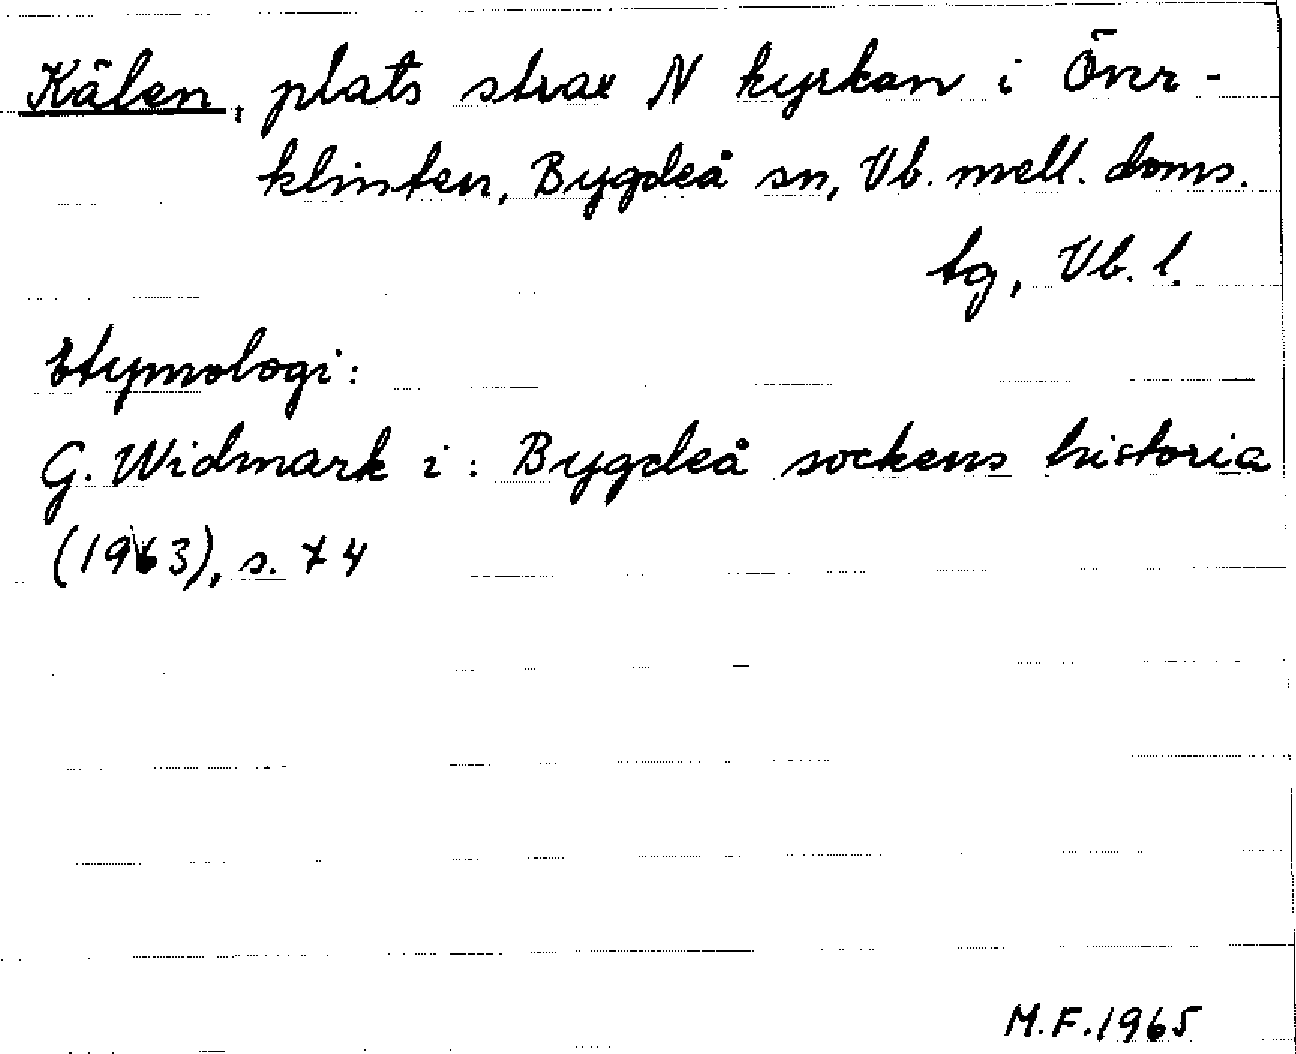 Kälen, plats strax N kyrkan i Över-
klinten, Bygdeå sn, Vb. mell. doms.
tg, Vb. l.
Etymologi:
G. Widmark i: Bygdeå sockens historia
(1963), s. 74
M.F.1965